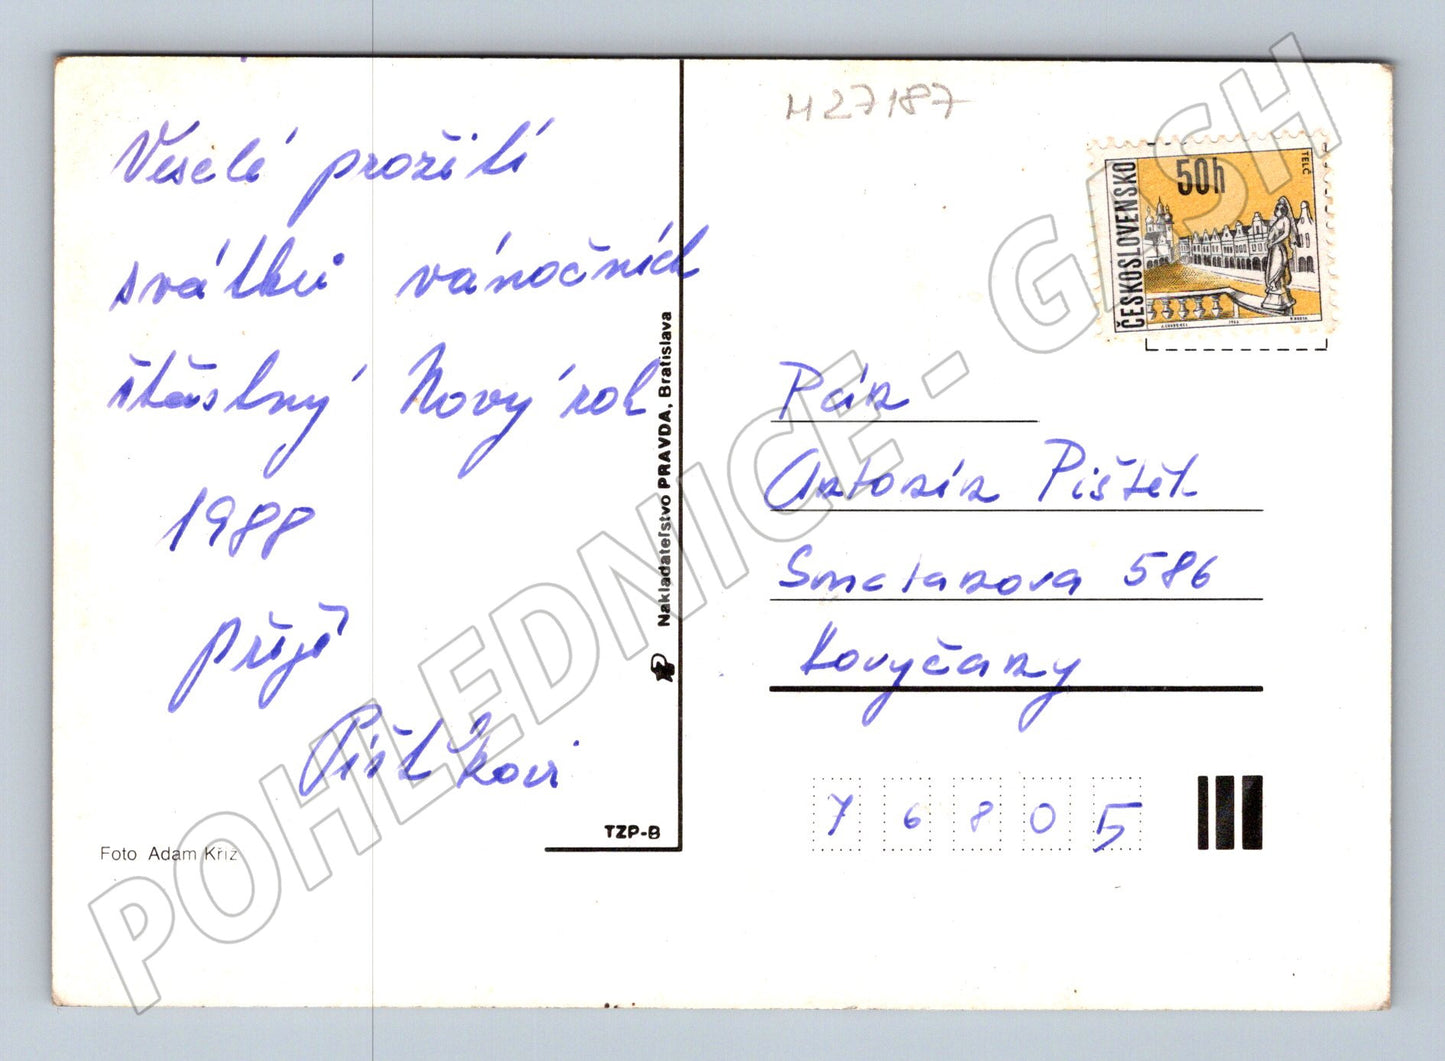 Veselé prožití
svátků vánočních
šťastný Nový rok
1988
přejí
Pišťěkovi
Foto Adam Kříž
TZP-B
Nakladateľstvo PRAVDA, Bratislava
H27187
ČESKOSLOVENSKO
50h
TELČ
1966
Pán
Antonín Pištěk
Smetanova 586
Koryčany
76805
POHLEDNICE - GASH